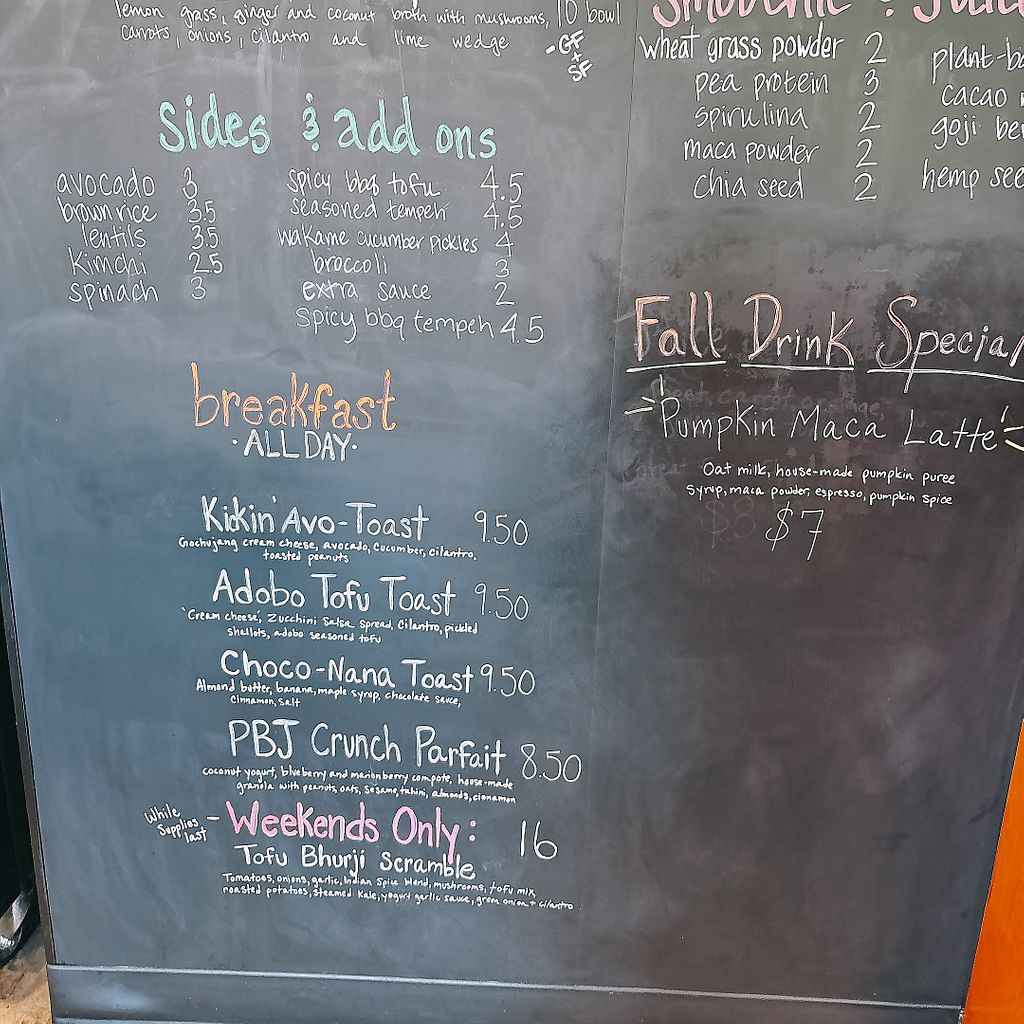 lemon grass, ginger and coconut broth with mushrooms, 10 bowl
carrots, onions, cilantro and lime wedge
-GF
+
SF
Sides & add ons
avocado 3
brown rice 3.5
lentils 3.5
Kimchi 2.5
spinach 3
spicy bbq tofu 4.5
seasoned tempeh 4.5
wakame cucumber pickles 4
broccoli 3
extra sauce 2
spicy bbq tempeh 4.5
breakfast
·ALL DAY·
Kickin' Avo-Toast 9.50
Gochujang cream cheese, avocado, cucumber, cilantro,
toasted peanuts
Adobo Tofu Toast 9.50
'Cream cheese', Zucchini Salsa Spread, Cilantro, pickled
shallots, adobo seasoned tofu
Choco-Nana Toast 9.50
Almond butter, banana, maple syrup, chocolate sauce,
cinnamon, salt
PBJ Crunch Parfait 8.50
coconut yogurt, blueberry and marionberry compote, house-made
granola with peanuts, oats, sesame, tahini, almonds, cinnamon
While
Supplies
last
- Weekends Only: 16
Tofu Bhurji Scramble
Tomatoes, onions, garlic, Indian Spice blend, mushrooms, tofu mix,
roasted potatoes, steamed kale, yogurt garlic sauce, green onion + cilantro
wheat grass powder 2
pea protein 3
spirulina 2
maca powder 2
chia seed 2
plant-ba
cacao
goji be
hemp see
Fall Drink Special
Pumpkin Maca Latte
Oat milk, house-made pumpkin puree
syrup, maca powder, espresso, pumpkin spice
$7